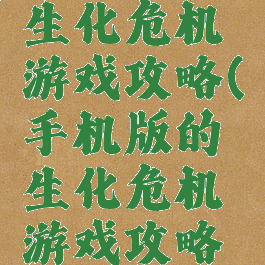 生化危机
游戏攻略(
手机版的
生化危机
游戏攻略